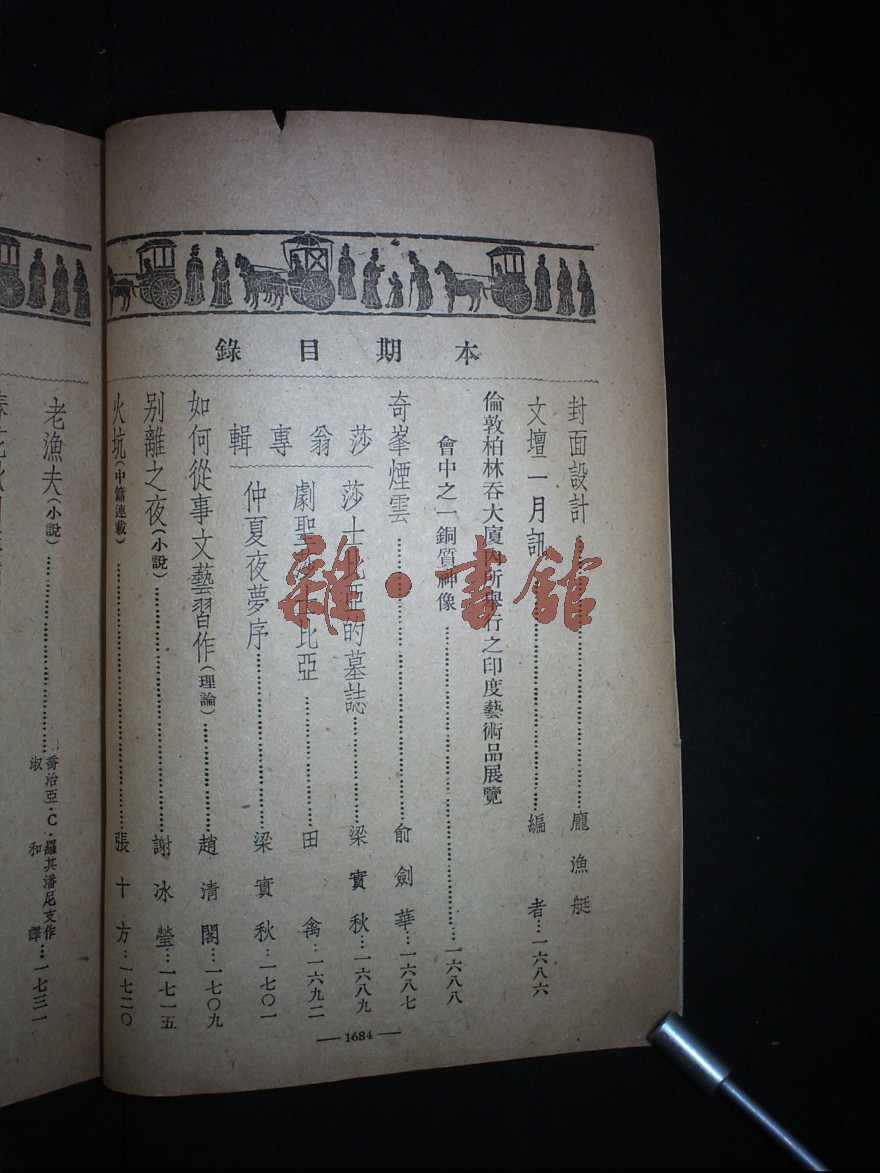 本期目錄
封面設計……龐漁艇
文壇一月訊……編者…一六八六
倫敦柏林吞大廈內所舉行之印度藝術品展覽
會中之一銅質神像……一六八八
奇峯煙雲……俞劍華…一六八七
莎翁專輯
莎士比亞的墓誌……梁實秋…一六八九
劇聖莎士比亞……田禽…一六九二
仲夏夜夢序……梁實秋…一七〇一
如何從事文藝習作(理論)……趙清閣…一七〇九
別離之夜(小說)……謝冰瑩…一七一五
火坑(中篇連載)……張十方…一七二〇
—1684—
老漁夫(小說)……喬治亞·C·羅其潘尼支作
淑和譯…一七三一
雜·書館